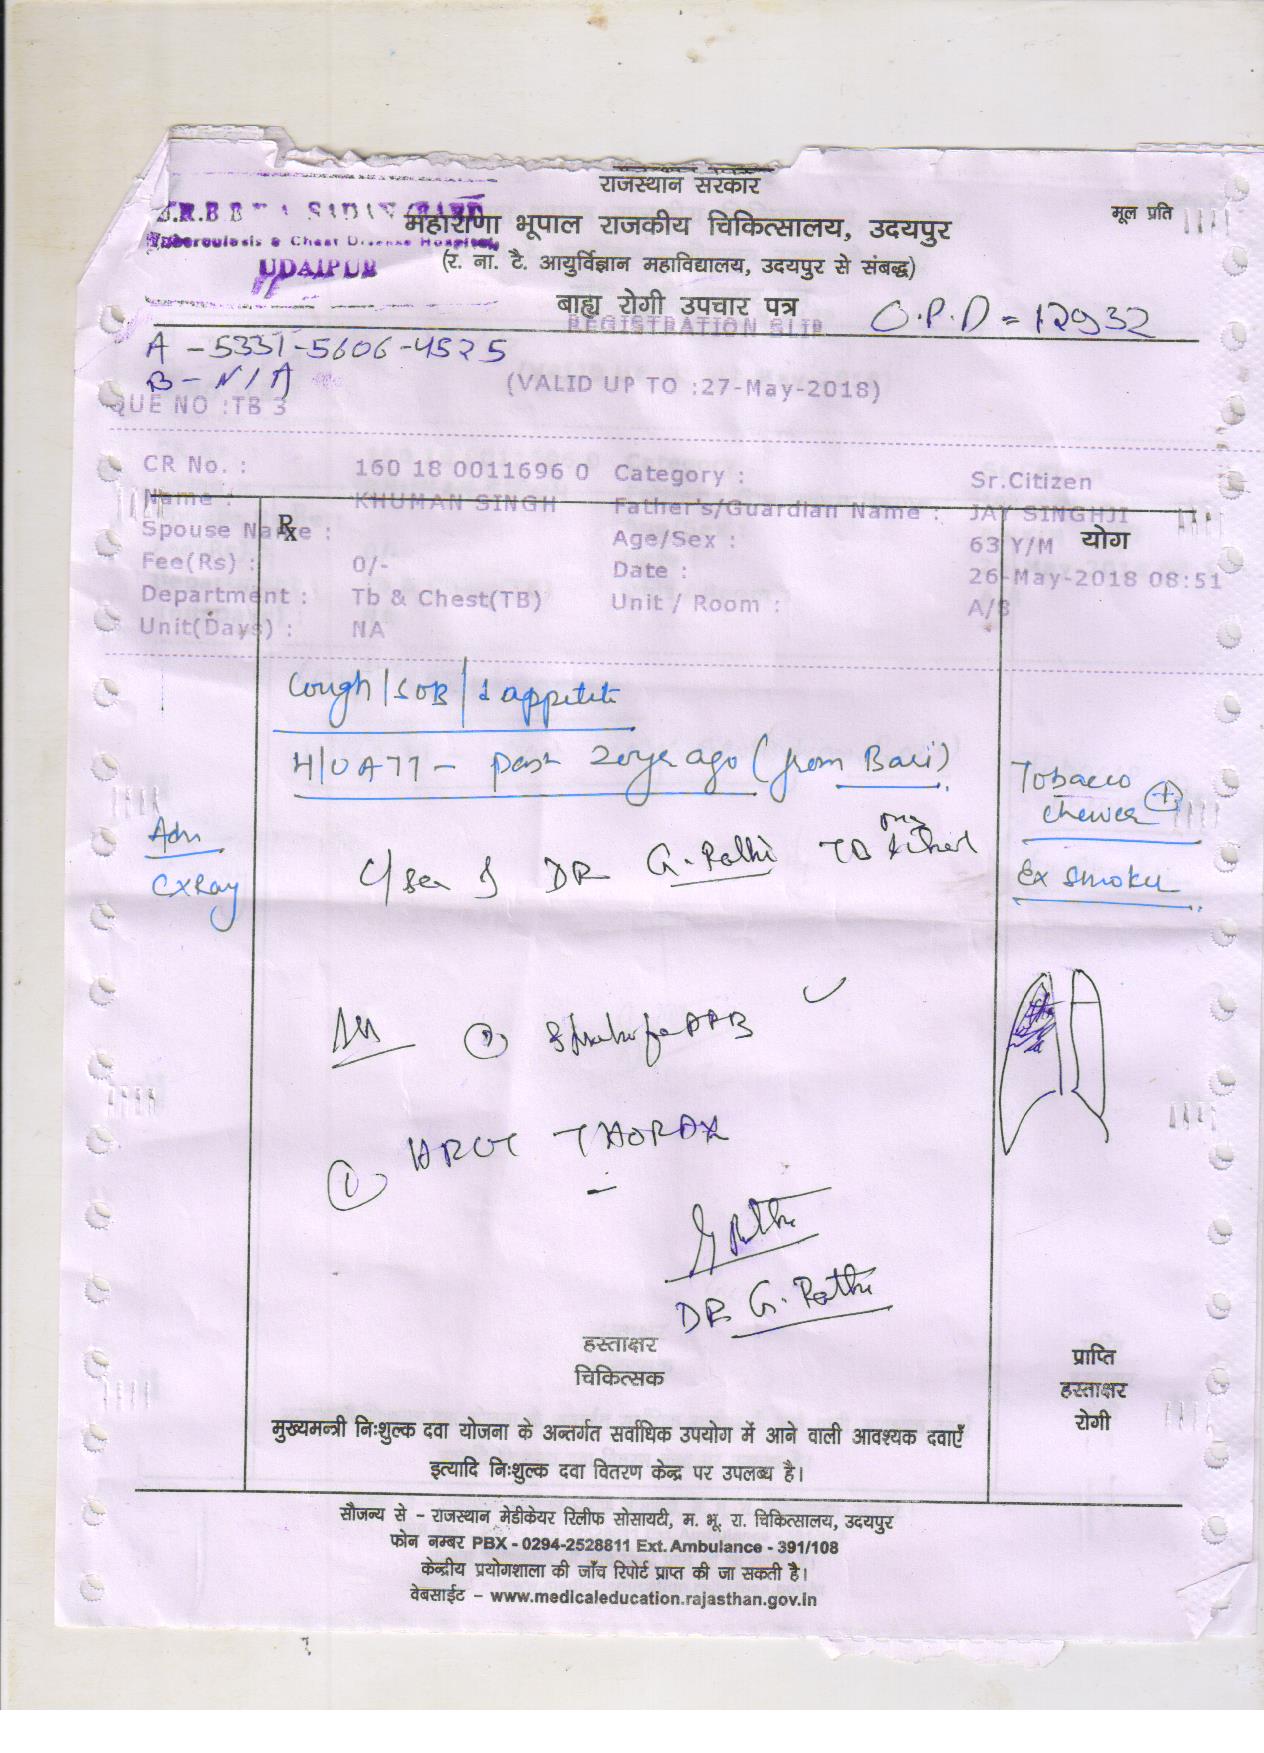 राजस्थान सरकार
महाराणा भूपाल राजकीय चिकित्सालय, उदयपुर
मूल प्रति
Tuberculosis & Chest Disease Hospital,
UDAIPUR
(र. ना. टै. आयुर्विज्ञान महाविद्यालय, उदयपुर से संबद्ध)
बाह्य रोगी उपचार पत्र
O.P.D = 12932
REGISTRATION SLIP
A - 5331-5606-4525
B - N/A
(VALID UP TO :27-May-2018)
QUE NO :TB 3
CR No. : 160 18 0011696 0 Category : Sr.Citizen
Name : KHUMAN SINGH Father's/Guardian Name : JAY SINGHJI
Rx
Spouse Name :
Age/Sex : 63 Y/M
योग
Fee(Rs) : 0/- Date : 26-May-2018 08:51
Department : Tb & Chest(TB) Unit / Room : A/8
Unit(Days) : NA
Cough/SOB/↓ appetite
H/O ATT - past 20 yr ago (from Bari)
Tobacco
chewer +
Adv
CXRay
DR G. Rathi TB
Ex smoker
HRCT THORAX
①
DR G. Rathi
हस्ताक्षर
चिकित्सक
प्राप्ति
हस्ताक्षर
रोगी
मुख्यमन्त्री निःशुल्क दवा योजना के अन्तर्गत सर्वाधिक उपयोग में आने वाली आवश्यक दवाएँ
इत्यादि निःशुल्क दवा वितरण केन्द्र पर उपलब्ध है।
सौजन्य से – राजस्थान मेडीकेयर रिलीफ सोसायटी, म. भू. रा. चिकित्सालय, उदयपुर
फोन नम्बर PBX - 0294-2528811 Ext. Ambulance - 391/108
केन्द्रीय प्रयोगशाला की जाँच रिपोर्ट प्राप्त की जा सकती है।
वेबसाईट – www.medicaleducation.rajasthan.gov.in